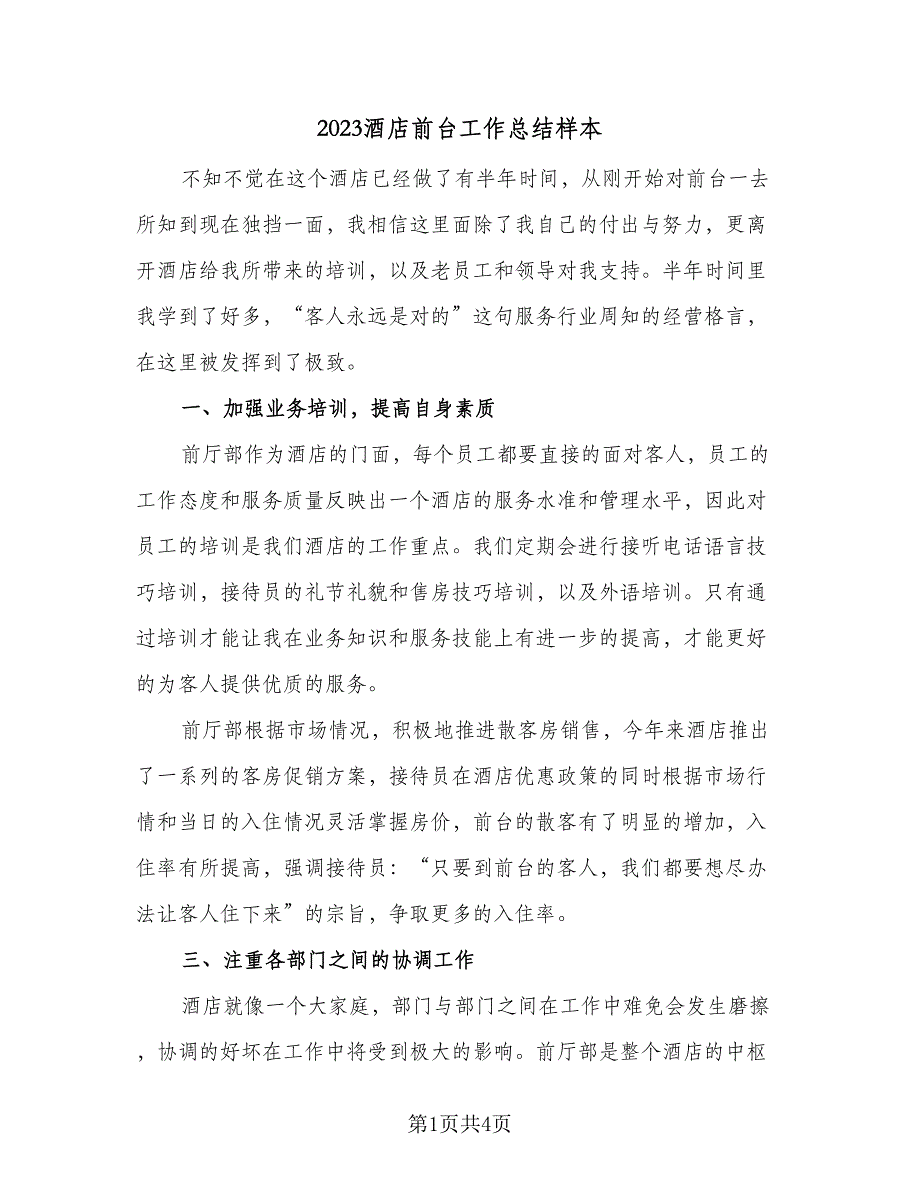 2023酒店前台工作总结样本
不知不觉在这个酒店已经做了有半年时间，从刚开始对前台一去
所知到现在独挡一面，我相信这里面除了我自己的付出与努力，更离
开酒店给我所带来的培训，以及老员工和领导对我支持。半年时间里
我学到了好多，“客人永远是对的”这句服务行业周知的经营格言，
在这里被发挥到了极致。
一、加强业务培训，提高自身素质
前厅部作为酒店的门面，每个员工都要直接的面对客人，员工的
工作态度和服务质量反映出一个酒店的服务水准和管理水平，因此对
员工的培训是我们酒店的工作重点。我们定期会进行接听电话语言技
巧培训，接待员的礼节礼貌和售房技巧培训，以及外语培训。只有通
过培训才能让我在业务知识和服务技能上有进一步的提高，才能更好
的为客人提供优质的服务。
前厅部根据市场情况，积极地推进散客房销售，今年来酒店推出
了一系列的客房促销方案，接待员在酒店优惠政策的同时根据市场行
情和当日的入住情况灵活掌握房价，前台的散客有了明显的增加，入
住率有所提高，强调接待员：“只要到前台的客人，我们都要想尽办
法让客人住下来”的宗旨，争取更多的入住率。
三、注重各部门之间的协调工作
酒店就像一个大家庭，部门与部门之间在工作中难免会发生磨擦
，协调的好坏在工作中将受到极大的影响。前厅部是整个酒店的中枢
第1页共4页